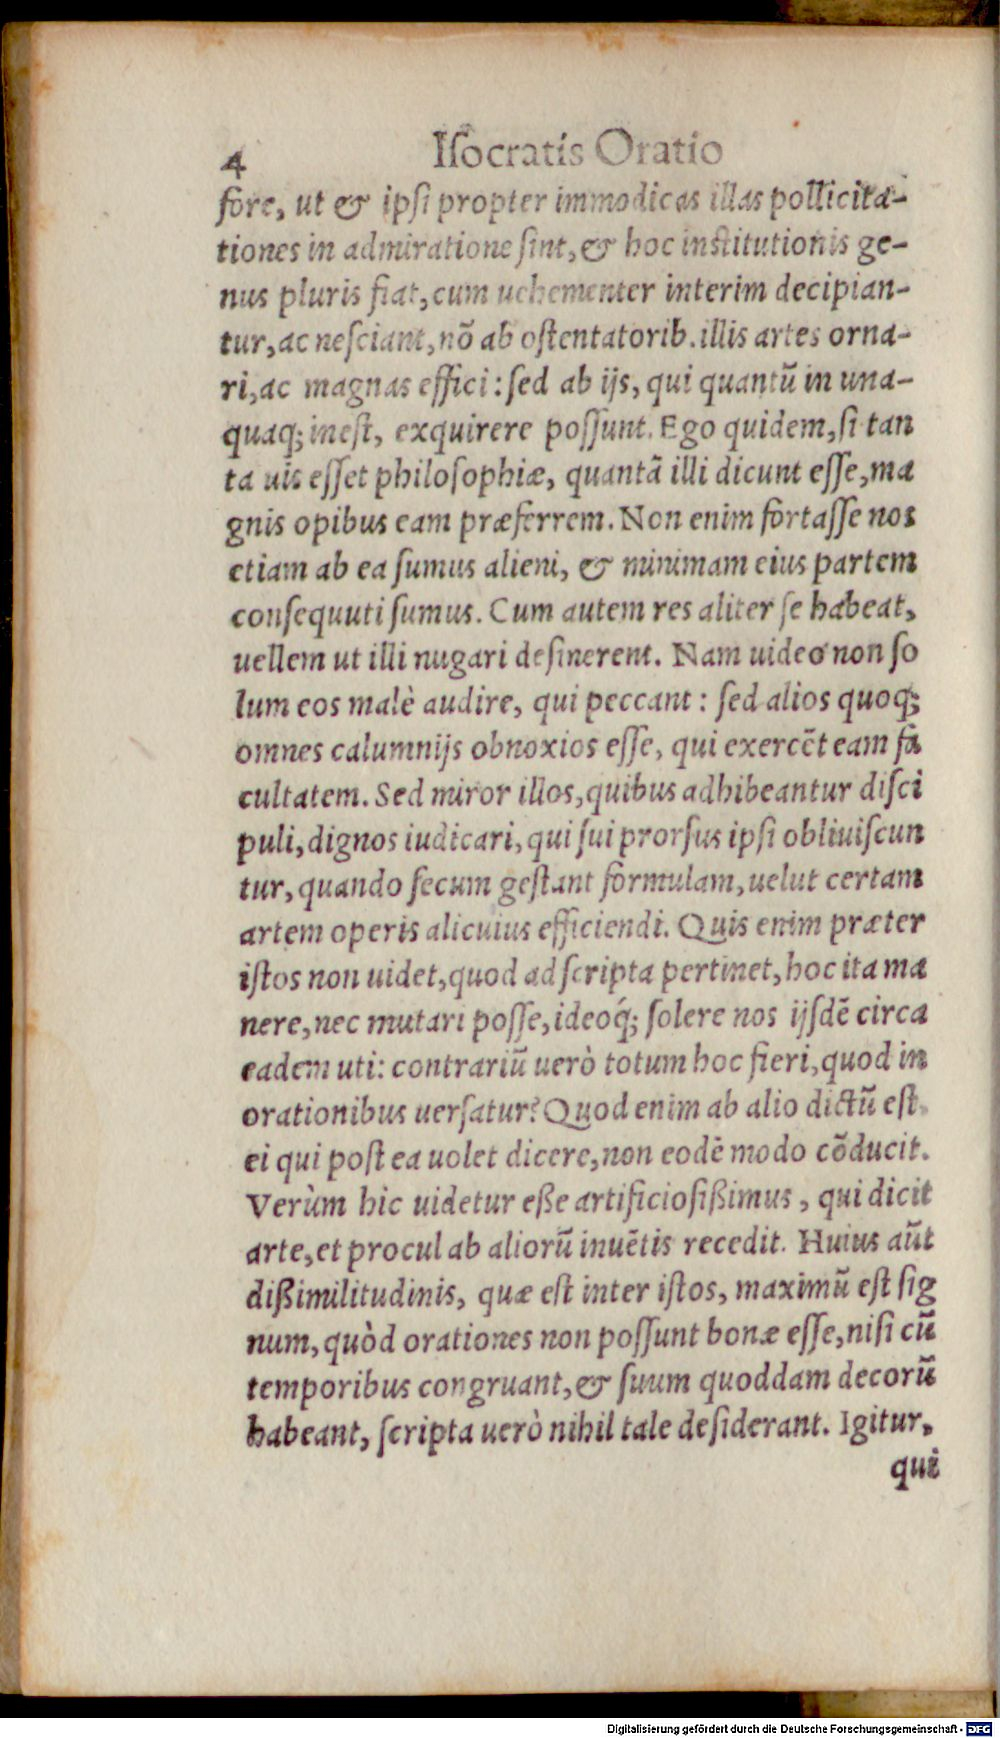 4 Iſocratis Oratio
fore, ut & ipſi propter immodicas illas pollicita-
tiones in admiratione ſint, & hoc inſtitutionis ge-
nus pluris fiat, cum uehementer interim decipian-
tur, ac neſciant, nõ ab oſtentatorib. illis artes orna-
ri, ac magnas effici: ſed ab ijs, qui quantũ in una-
quaq; ineſt, exquirere poſſunt. Ego quidem, ſi tan
ta uis eſſet philoſophiæ, quantã illi dicunt eſſe, ma
gnis opibus eam præferrem. Non enim fortaſſe nos
etiam ab ea ſumus alieni, & minimam eius partem
conſequuti ſumus. Cum autem res aliter ſe habeat,
uellem ut illi nugari deſinerent. Nam uideo non ſo
lum eos malè audire, qui peccant: ſed alios quoq;
omnes calumnijs obnoxios eſſe, qui exercẽt eam fa
cultatem. Sed miror illos, quibus adhibeantur diſci
puli, dignos iudicari, qui ſui prorſus ipſi obliuiſcun
tur, quando ſecum geſtant formulam, uelut certam
artem operis alicuius efficiendi. Quis enim præter
iſtos non uidet, quod ad ſcripta pertinet, hoc ita ma
nere, nec mutari poſſe, ideoq́; ſolere nos ijſdẽ circa
eadem uti: contrariũ uerò totum hoc fieri, quod in
orationibus uerſatur? Quod enim ab alio dictũ eſt
ei qui poſt ea uolet dicere, non eodẽ modo cõducit.
Verùm hic uidetur eße artificioſißimus, qui dicit
arte, et procul ab aliorũ inuẽtis recedit. Huius aũt
dißimilitudinis, quæ eſt inter iſtos, maximũ eſt ſig
num, quòd orationes non poſſunt bonæ eſſe, niſi cũ
temporibus congruant, & ſuum quoddam decorũ
habeant, ſcripta uerò nihil tale deſiderant. Igitur,
qui
Digitalisierung gefördert durch die Deutsche Forschungsgemeinschaft - DFG